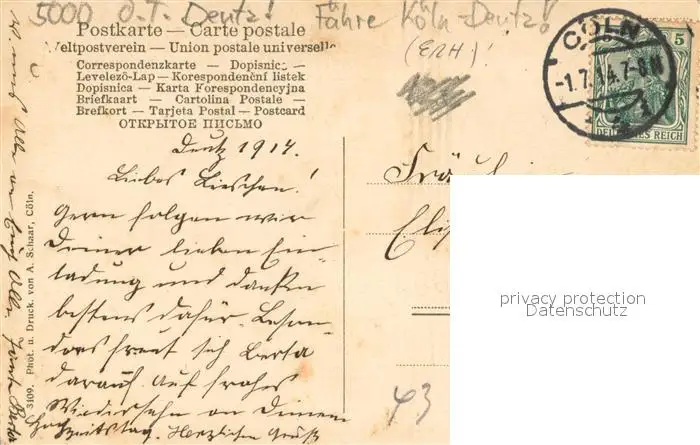 5000 O.T. Deutz! Fähre Köln-Deutz!
(ERH)!
Postkarte — Carte postale
Weltpostverein — Union postale universelle
Correspondenzkarte — Dopisnic —
Levelező-Lap — Korespondenční lístek
Dopisnica — Karta Forespondencyjna
Briefkaart — Cartolina Postale —
Brefkort — Tarjeta Postal — Postcard
ОТКРЫТОЕ ПИСЬМО
CÖLN
-1.7.14.7-8N
5
DEUTSCHES REICH
Deutz 1914.
Liebes Lieschen!
Gern folgen wir
Deiner lieben Ein-
ladung und danken
bestens dafür. Beson-
ders freut sich Berta
darauf. Auf frohes
Wiedersehn an Deinem
Hochzeitstag. Herzlichen Gruß
Fräulein
Elis
43
3109. Phot. u. Druck. von A. Schaar, Cöln.
privacy protection
Datenschutz